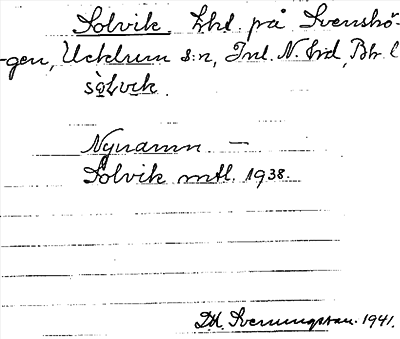 Solvik Lht. på Svenshö-
gen, Ucklum s:n, Inl. N. hd, Bh. l
sòlvik.
Nynamn —
Solvik mtl. 1938.
D. Svenungsson. 1941.